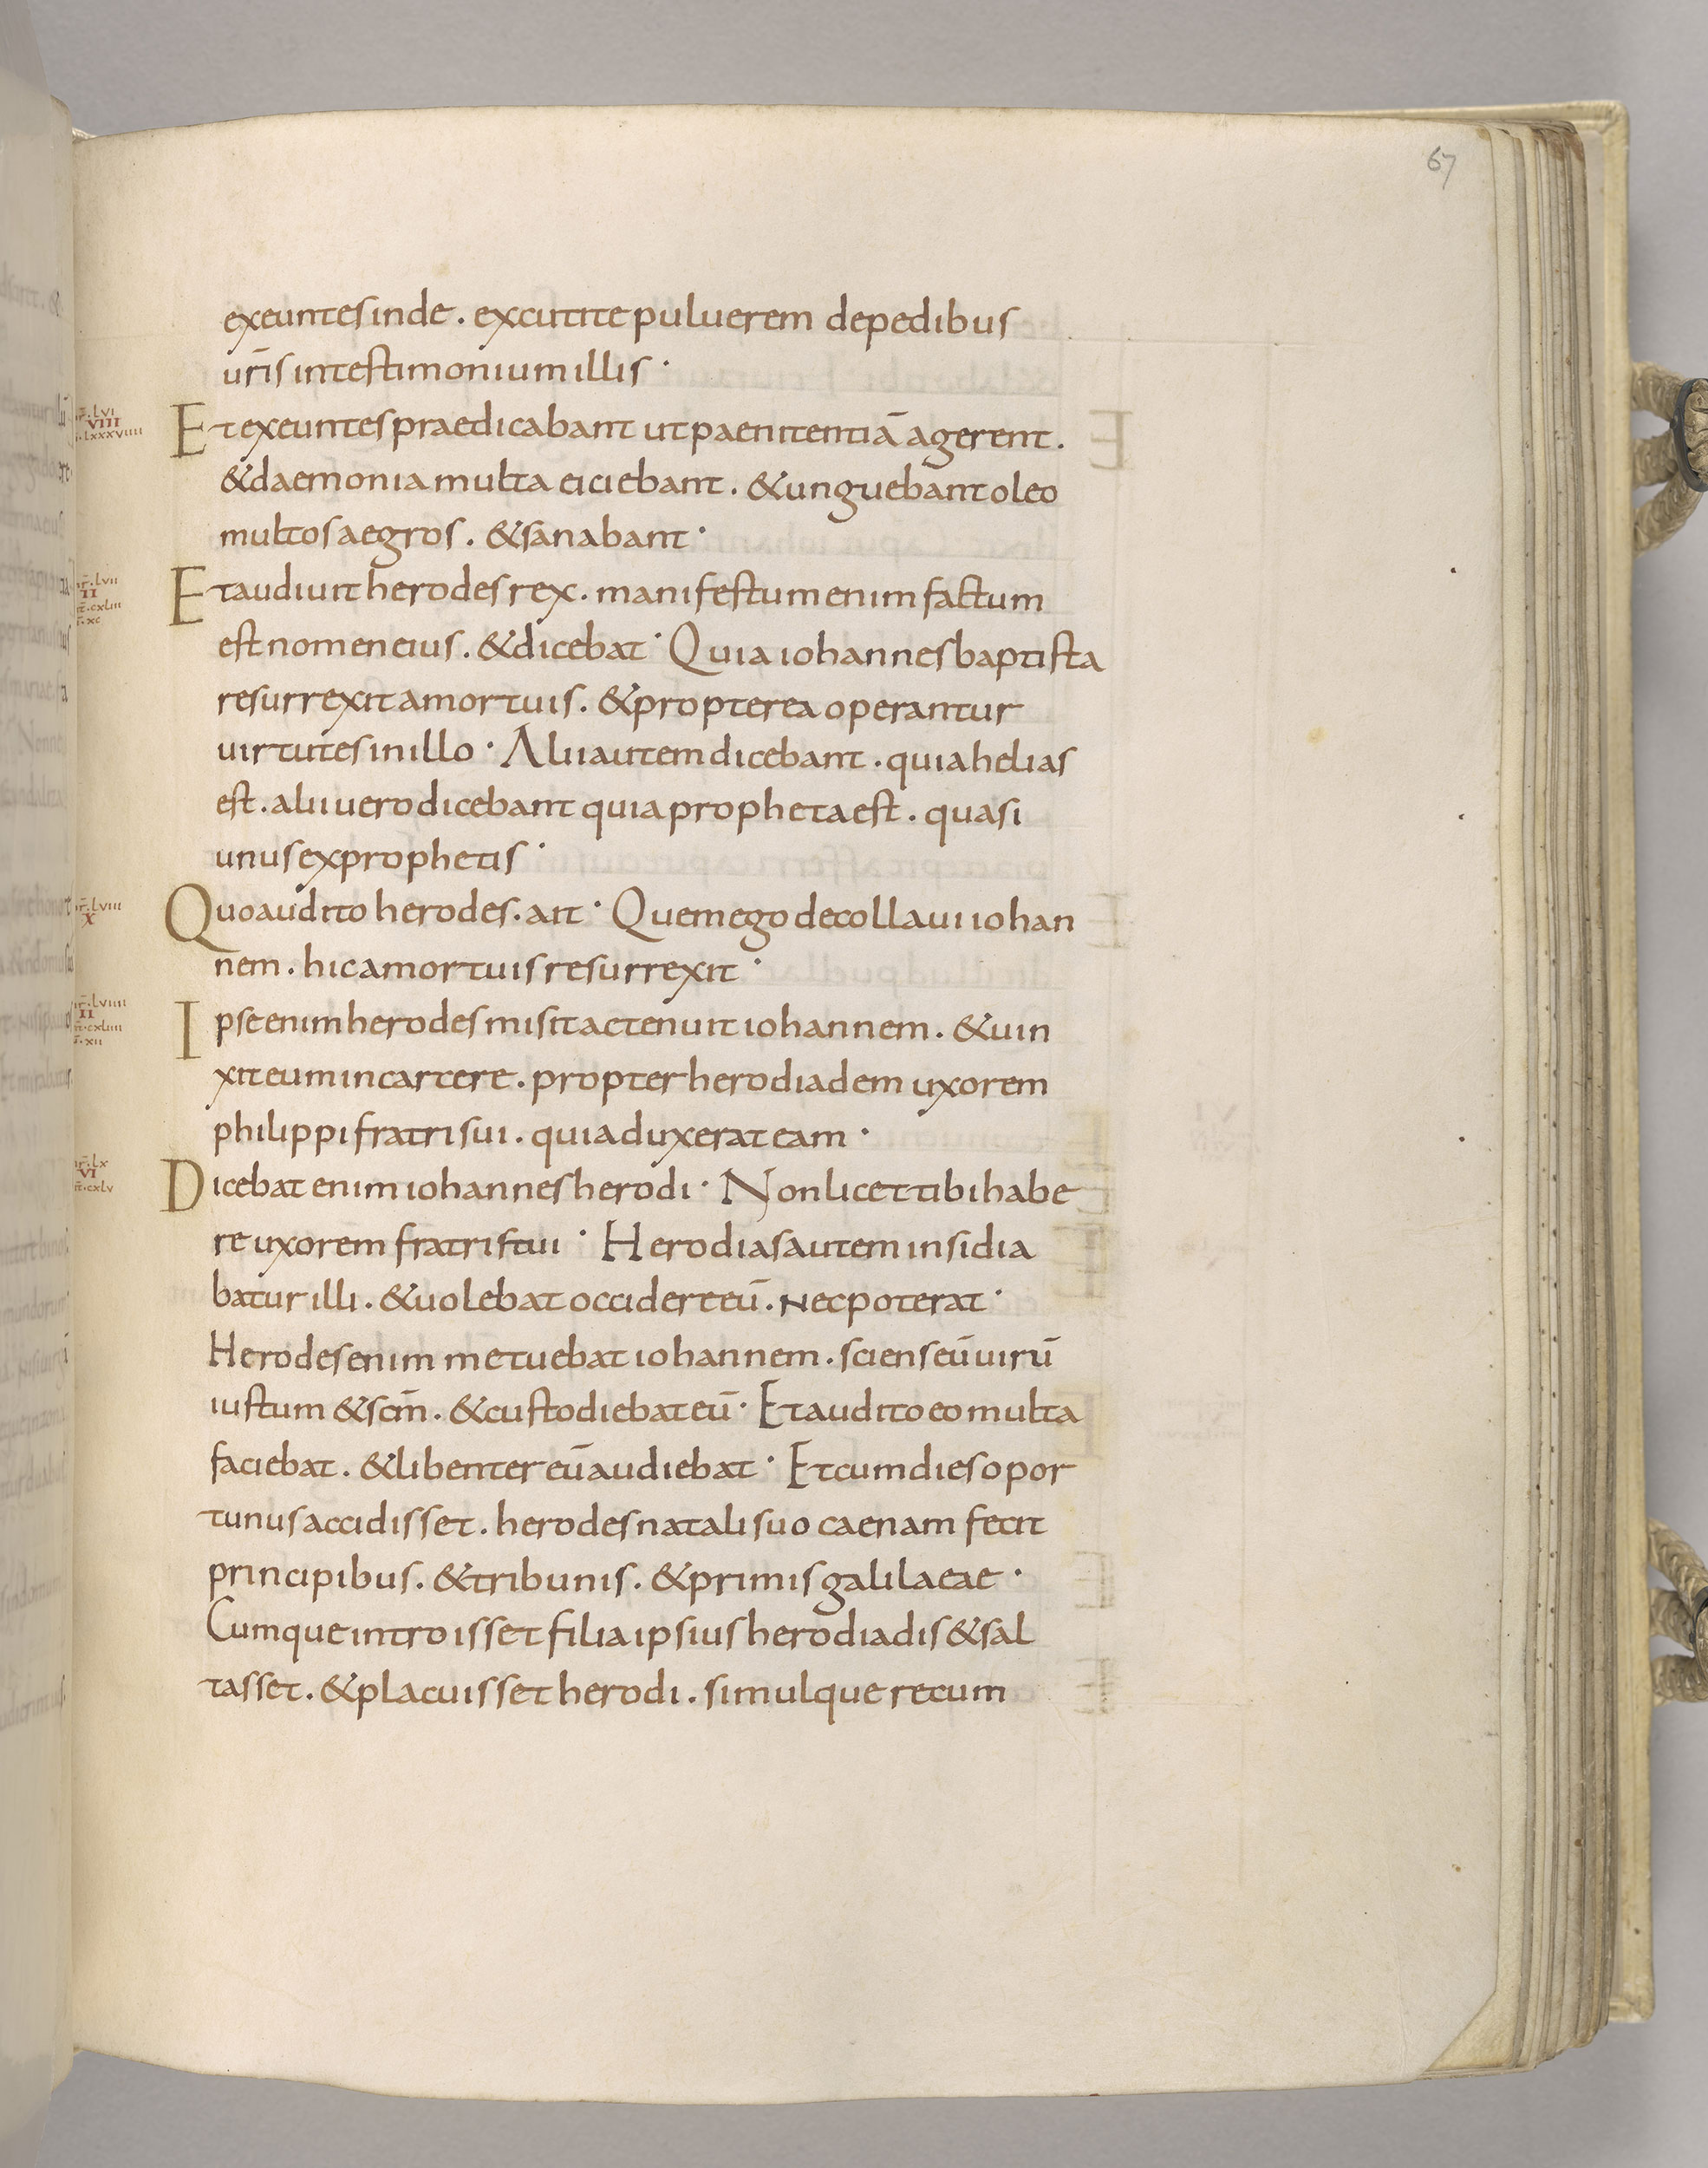 67
exeuntes inde . excutite puluerem de pedibus
ur̄is in testimonium illis ·
mr̄ . lvi
VIII
l . lxxxviiii
Et exeuntes praedicabant ut paenitentiā agerent .
& daemonia multa eiciebant . & unguebant oleo
multos aegros . & sanabant ·
mr̄ . lvii
II
mt̄ . cxliii
l . xc
Et audiuit herodes rex . manifestum enim factum
est nomen eius . & dicebat · Quia iohannes baptista
resurrexit a mortuis . & propterea operantur
uirtutes in illo · Alii autem dicebant . quia helias
est . alii uero dicebant quia propheta est . quasi
unus ex prophetis ·
mr̄ . lviii
X
Quo audito herodes . ait · Quem ego decollaui iohan
nem . hic a mortuis resurrexit ·
mr̄ . lviiii
II
mt̄ . cxliiii
l . xii
Ipse enim herodes misit ac tenuit iohannem . & uin
xit eum in carcere . propter herodiadem uxorem
philippi fratri sui . quia duxerat eam ·
mr̄ . lx
VI
mt̄ . cxlv
Dicebat enim iohannes herodi · Non licet tibi habe
re uxorem fratris tui · Herodias autem insidia
batur illi . & uolebat occidere eū . nec poterat ·
Herodes enim metuebat iohannem . sciens eū uirū
iustum & scm̄ . & custodiebat eū · Et audito eo multa
faciebat . & libenter eū audiebat · Et cum dies opor
tunus accidisset . herodes natali suo caenam fecit
principibus . & tribunis . & primis galilaeae ·
Cumque introisset filia ipsius herodiadis & sal
tasset . & placuisset herodi . simulque recum